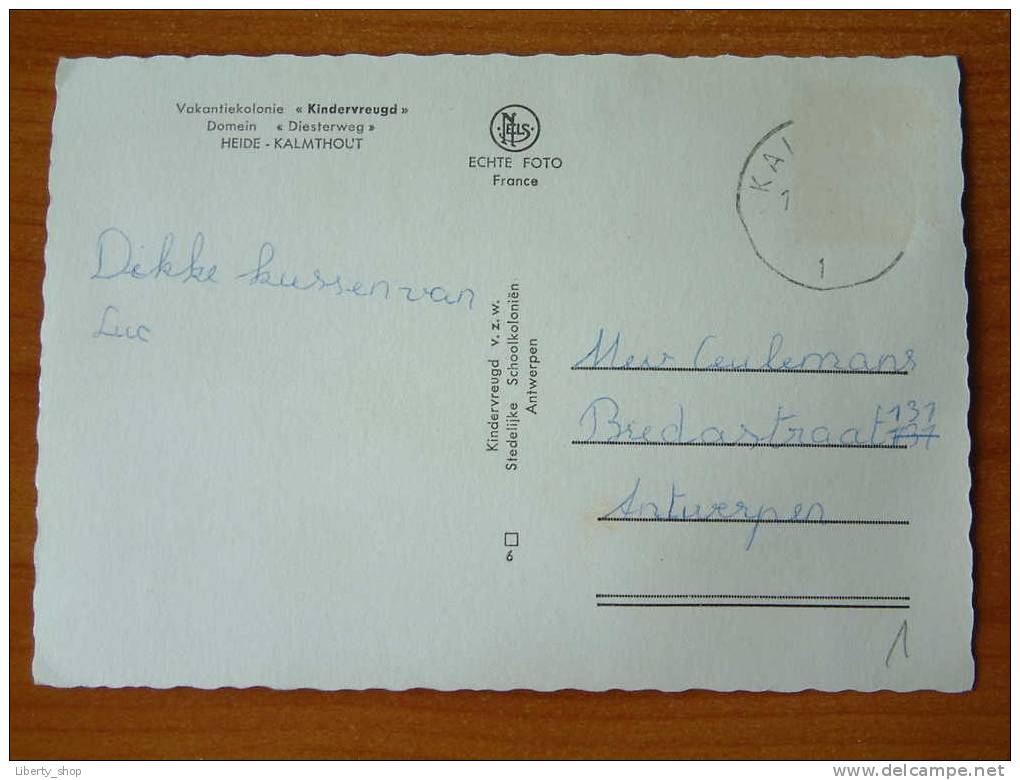 Vakantiekolonie « Kindervreugd »
Domein « Diesterweg »
HEIDE - KALMTHOUT
NELS
ECHTE FOTO
France
KAL
1
1
Dikke kussen van
Luc
Kindervreugd v. z. w.
Stedelijke Schoolkoloniën
Antwerpen
6
Mevr Ceulemans
Bredastraat 131
Antwerpen
1
Liberty_shop
www.delcampe.net